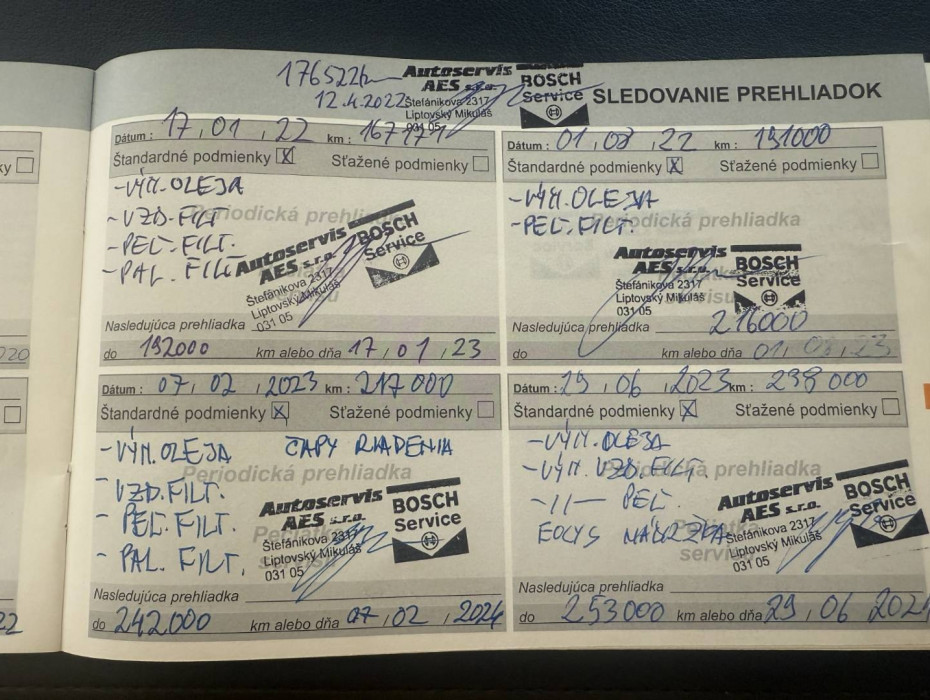 176522km
12.4.2022
Autoservis
AES s.r.o.
Štefánikova 2317
Liptovský Mikuláš
031 05
BOSCH
Service
SLEDOVANIE PREHLIADOK
Dátum : 17 . 01 . 22 km : 167
Štandardné podmienky X Sťažené podmienky
Periodická prehliadka
- VÝM. OLEJA
- VZD. FILT
- PEĽ. FILT.
- PAL. FILT
Autoservis
AES s.r.o.
Štefánikova 2317
Liptovský Mikuláš
031 05
BOSCH
Service
Nasledujúca prehliadka
do 192000 km alebo dňa 17 . 01 . 23
Dátum : 01 . 08 . 22 km : 191000
Štandardné podmienky X Sťažené podmienky
Periodická prehliadka
- VÝM. OLEJA
- PEĽ. FILT.
Autoservis
AES s.r.o.
Štefánikova 2317
Liptovský Mikuláš
031 05
BOSCH
Service
Nasledujúca prehliadka 216000
do km alebo dňa 01 . 08 . 23
Dátum : 07 . 02 . 2023 km : 217 000
Štandardné podmienky X Sťažené podmienky
Periodická prehliadka
- VÝM. OLEJA ČAPY RIADENIA
- VZD. FILT.
- PEĽ. FILT.
- PAL. FILT.
Autoservis
AES s.r.o.
Štefánikova 2317
Liptovský Mikuláš
031 05
BOSCH
Service
Nasledujúca prehliadka
do 242.000 km alebo dňa 07 . 02 . 2024
Dátum : 29 . 06 . 2023 km : 238 000
Štandardné podmienky X Sťažené podmienky
Periodická prehliadka
- VÝM. OLEJA
- VÝM. VZD. FILT.
- 11 — PEĽ
EOLYS
servisu
Autoservis
AES s.r.o.
Štefánikova 2317
Liptovský Mikuláš
031 05
BOSCH
Service
Nasledujúca prehliadka
do 253000 km alebo dňa 29 . 06 202